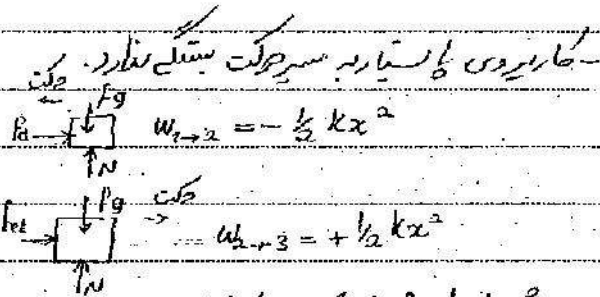 - کار نیروی پایستار به مسیر حرکت بستگی ندارد.
حرکت
Fg
Fel W₁→₂ = - ½ kx²
N
Fg حرکت
Fel W₂→₃ = + ½ kx²
N